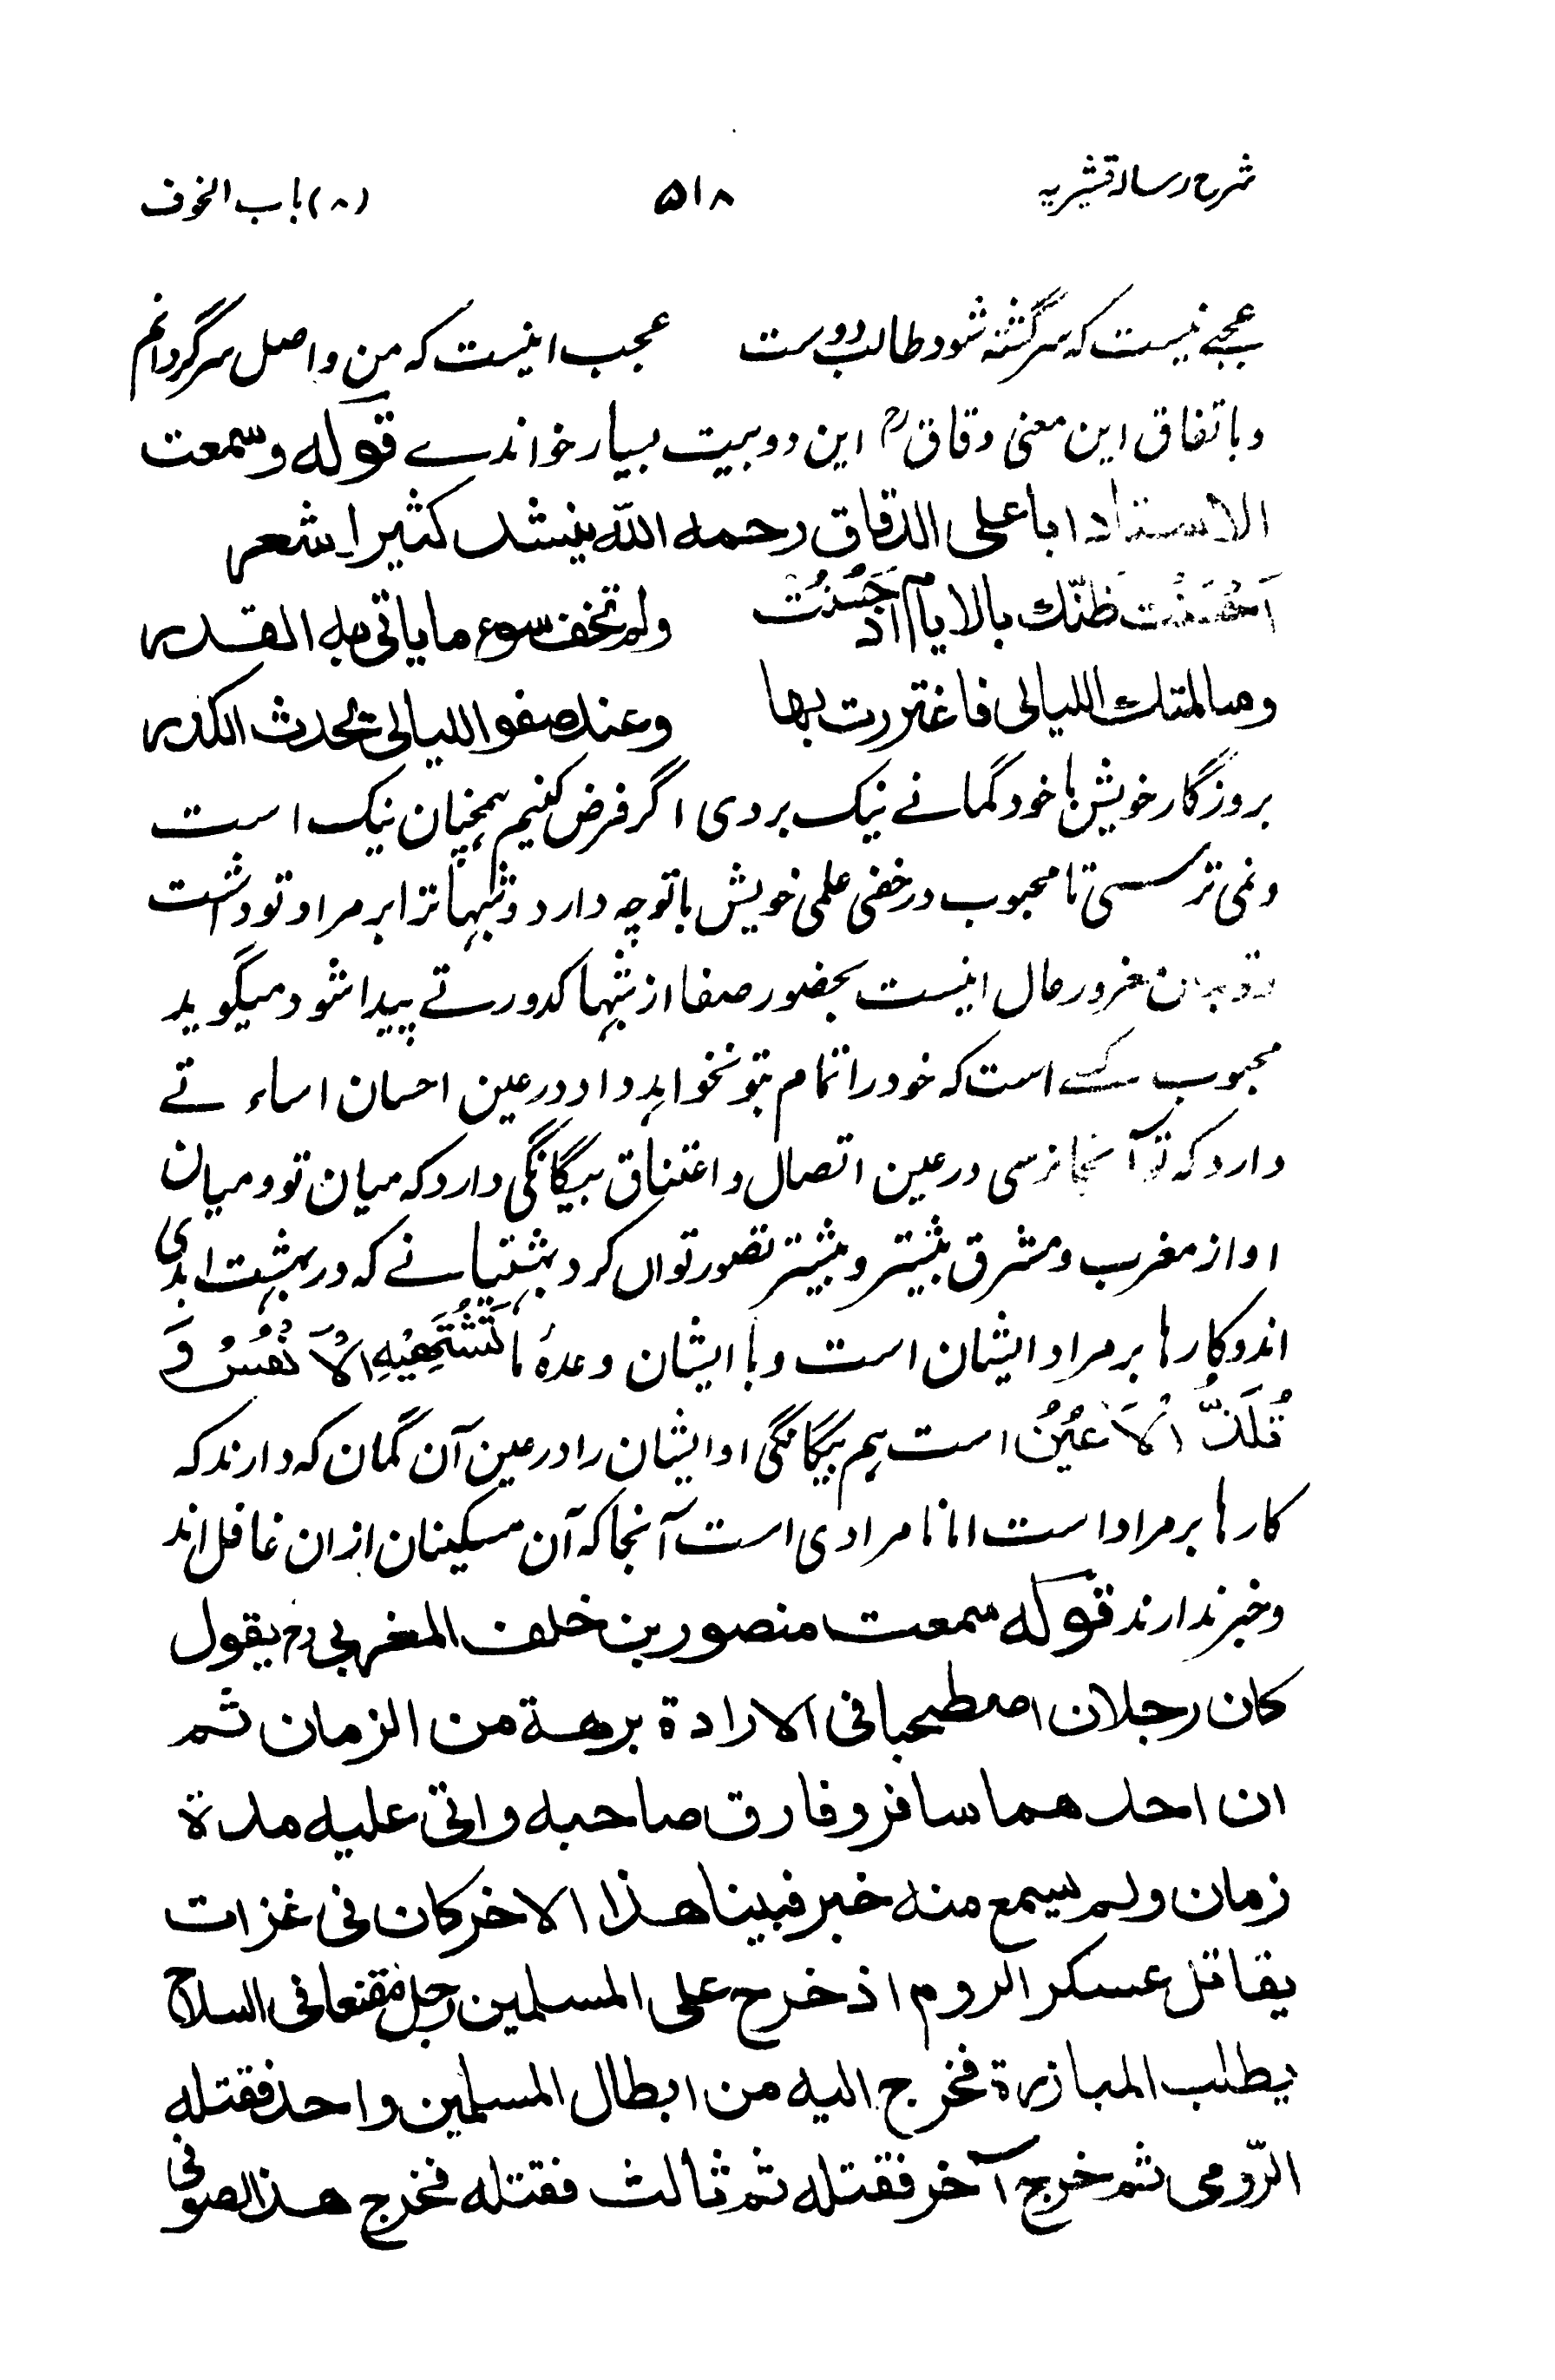 شرح رسالہ قشیریہ ۵۱۸ (۸) باب الخوف
عجبے نیست کہ سرگشتہ شود طالب دوست عجب اینست کہ من واصل سرگردانم
وباتفاق این معنی دقاق رح این دو بیت بسیار خواندے قوله وسمعت
الاستاد اباعلی الدقاق رحمه الله ینشد کثیرا شعر
اَحْسَنْتَ ظنّك بالایام اذ حَسُنَتْ ولم تخف سوء ما یاتی به القدر
وسالمتك اللیالی فاغتررت بها وعند صفو اللیالی تحدث الکدر
بروزگار خویش با خود گمانے نیک بردی اگر فرض کنیم ہمچنان نیک است
ونمی ترسی تا محبوب در خفی علمی خویش باتوچہ دارد وشبہا ترا بر مراد تو داشت
مغرور حال اینست بحضور صفا از شبہا کدورتے پیدا شود میگوید
محبوب کسے است کہ خود را تمام بتو نخواہد داد در عین احسان اساءتے
دارد کہ تو آنجا نرسی در عین اتصال و اعتناق بیگانگی دارد کہ میان تو و میان
او از مغرب و مشرق بیشتر و بیشتر تصور تواں کرد بہشتیانے کہ در بہشت ابدی
اند و کارہا بر مراد ایشان است و با ایشان وعدۂ مَا تَشْتَهِیْهِ الْاَنْفُسُ وَ
تَلَذُّ الْاَعْیُنُ است بیم بیگانگی او ایشان را در عین آن گمان کہ دارند کہ
کارہا بر مراد است اما نامرادی است آنجا کہ آن مسکینان ازان غافل اند
وخبر ندارند قوله سمعت منصور بن خلف المغربی رح یقول
کان رجلان اصطحبا فی الارادة برهة من الزمان ثم
ان احدهما سافر وفارق صاحبه واتی علیه مدة
زمان ولم یسمع منه خبر فبینا هذا الاخر کان فی غزات
یقاتل عسکر الروم اذ خرج علی المسلمین رجل مقنعا فی السلاح
یطلب المبارزة فخرج الیه من ابطال المسلمین واحد فقتله
الرّومی ثم خرج آخر فقتله ثم ثالث فقتله فخرج هذا الصوفی